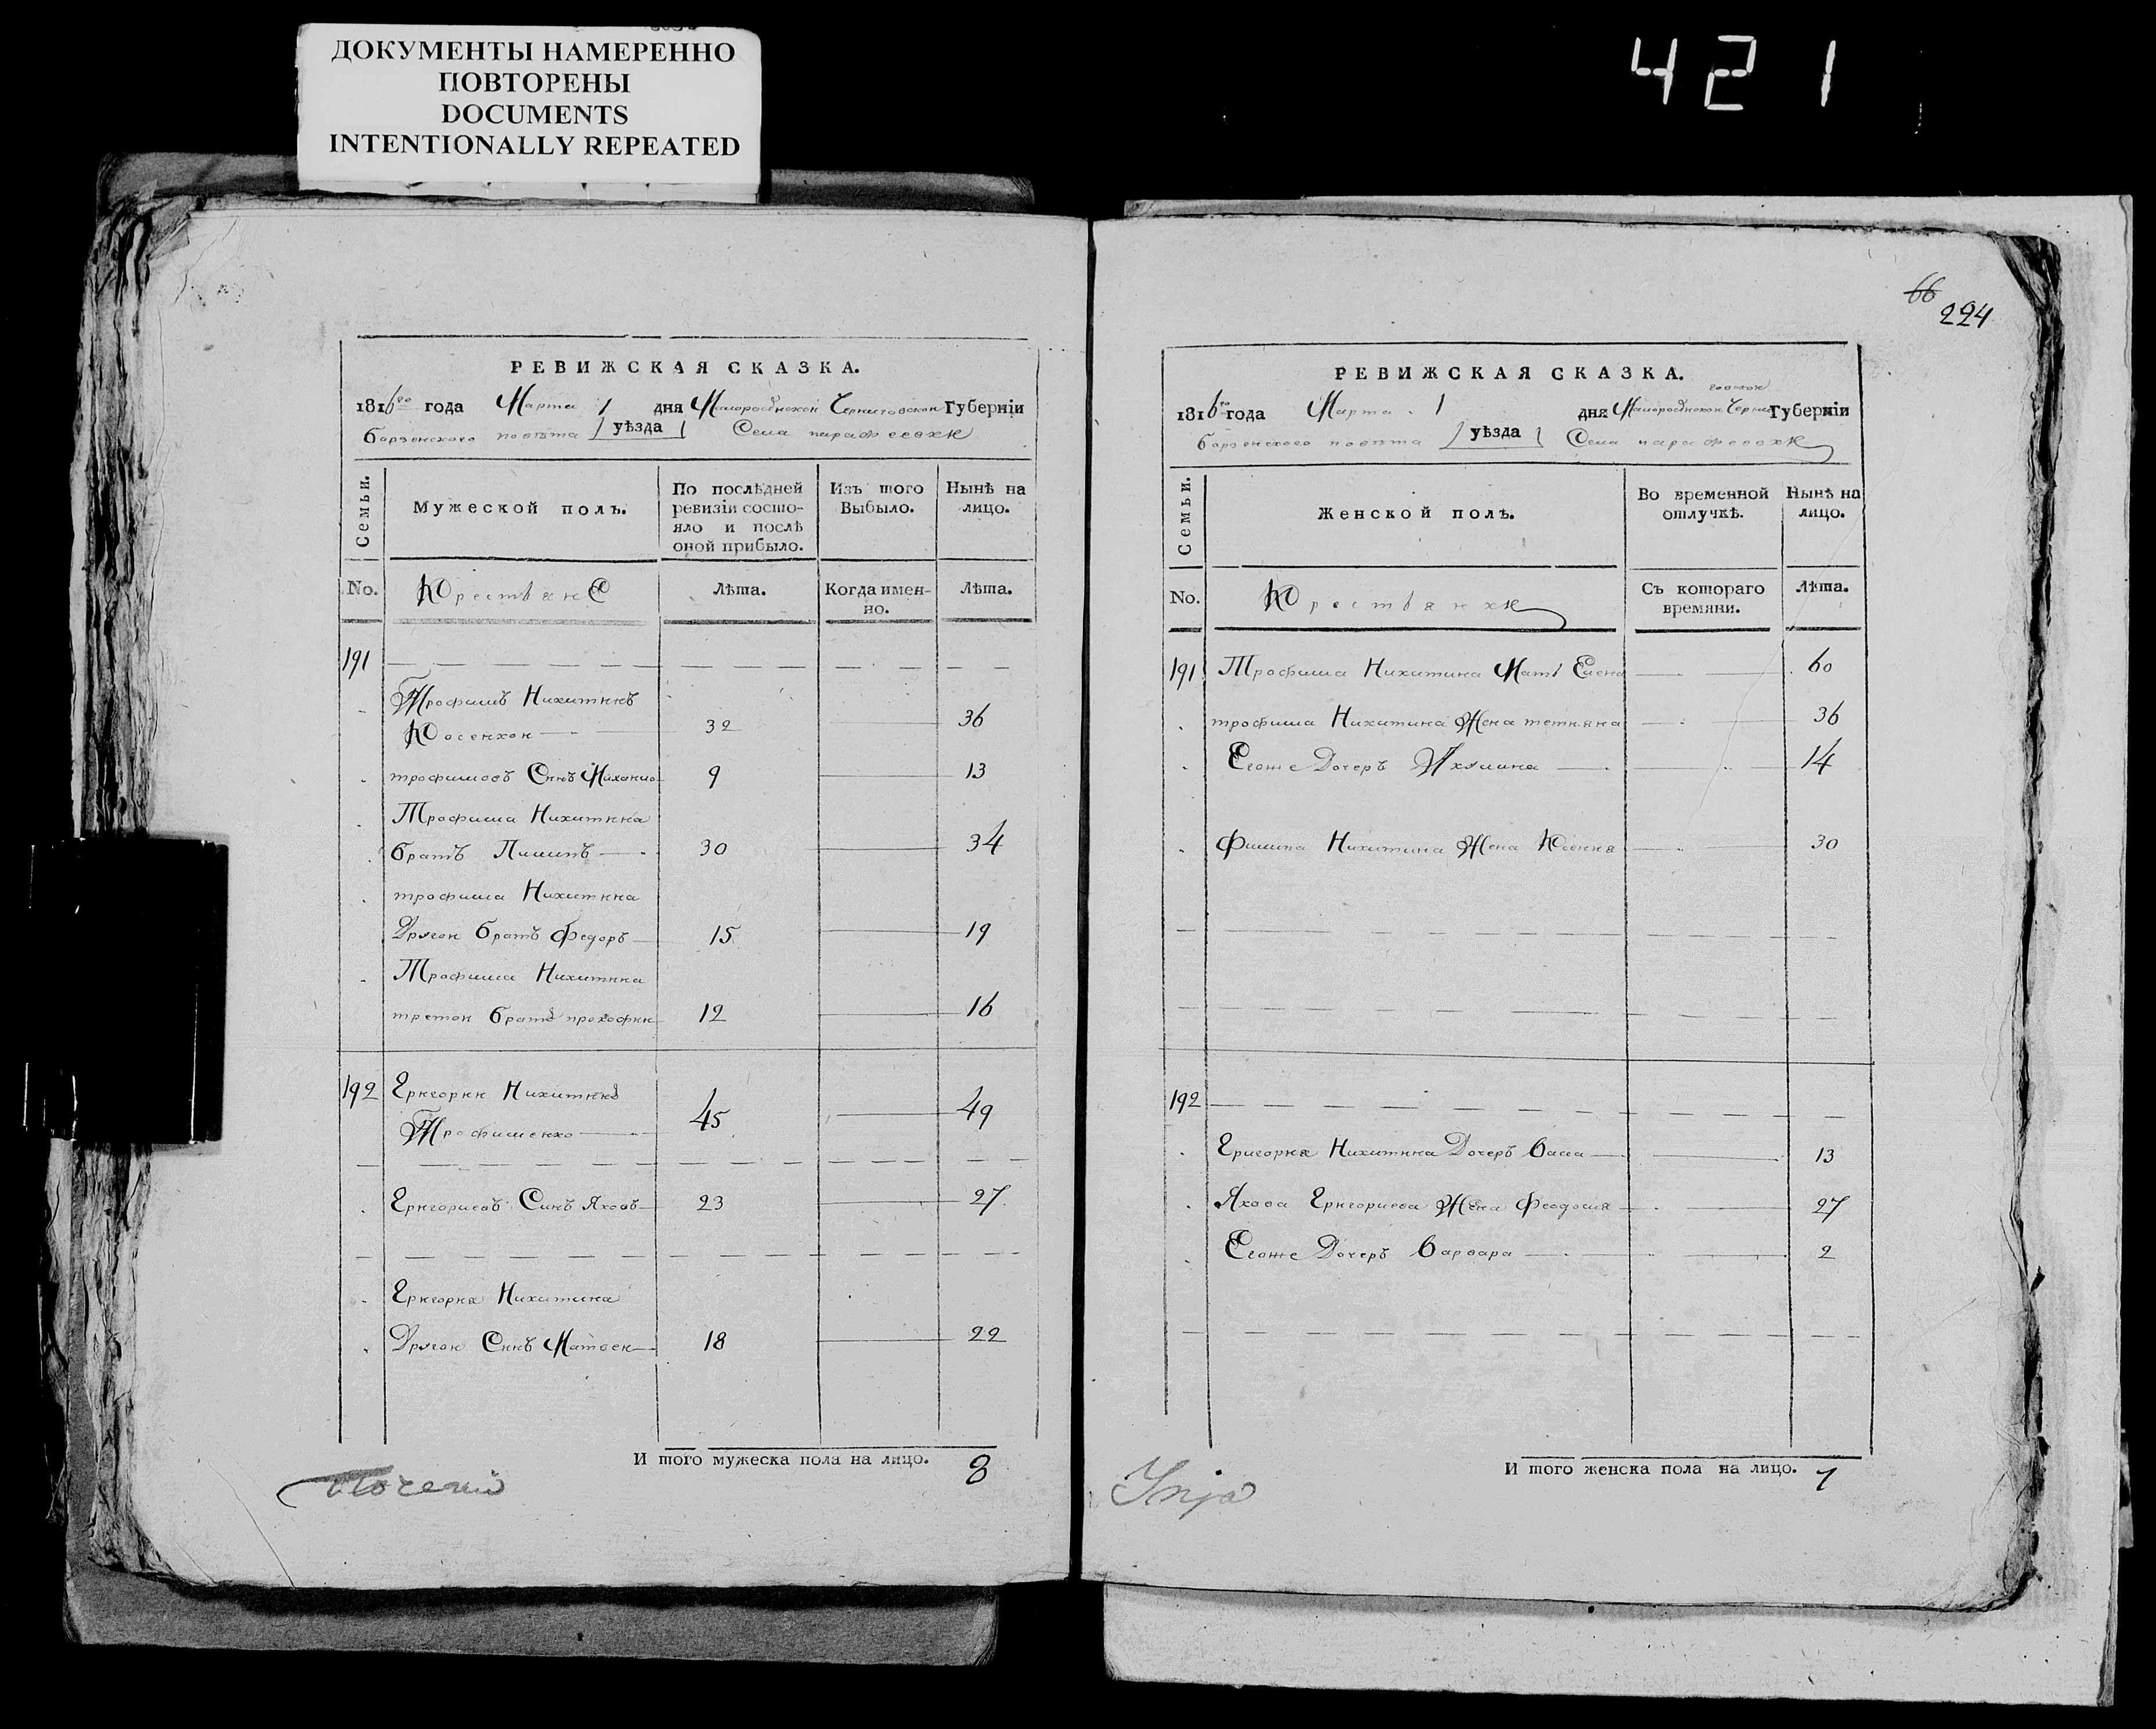 ДОКУМЕНТЫ НАМЕРЕННО
ПОВТОРЕНЫ
DOCUMENTS
INTENTIONALLY REPEATED
421
РЕВИЖСКАЯ СКАЗКА.
1816го года Марта 1 дня Малоросійской Черниговской Губерніи
Борзенского повѣта уѣзда Села парафѣевки
Семьи.
Мужеской полъ.
По послѣдней
ревизіи состо-
яло и послѣ
оной прибыло.
Изъ того
Выбыло.
Нынѣ на
лицо.
No.
Крестьяне
Лѣта.
Когда имен-
но.
Лѣта.
191
Трофимъ Никитинъ
32 36
трофимовъ Синъ Михаило 9 13
Трофима Никитина
братъ Пилипъ 30 34
трофима Никитина
Другой братъ Федоръ 15 19
Трофима Никитина
третой братъ прокофии 12 16
192 Григории Никитинъ
Трофименко 45 49
Григориевъ Синъ Яковъ 23 27
Григория Никитина
Другой Синъ Матвеи 18 22
И того мужеска пола на лицо. 8
66
224
РЕВИЖСКАЯ СКАЗКА.
говской
1816го года Марта 1 дня Малоросійской Черни Губерніи
борзенского повѣта уѣзда Села парафѣевки
Семьи.
Женской полъ.
Во временной
отлучкѣ.
Нынѣ на
лицо.
No.
Крестьянки
Съ котораго
времяни.
Лѣта.
191 Трофима Никитина Мать Елена 60
трофима Никитина Жена тетияна 36
Егоже Дочеръ Акулина 14
Филипа Никитина Жена 30
192
Григория Никитина Дочеръ Васа 13
Якова Григориева Жена Феодосия 27
Егоже Дочеръ Варвара 2
И того женска пола на лицо. 7